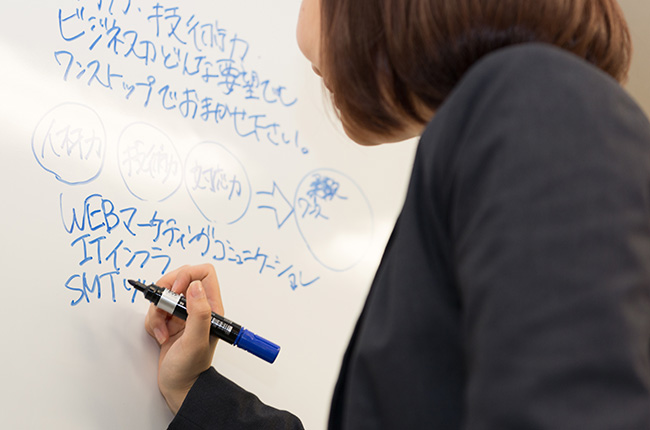 技術力
ビジネスがどんな要望でも
ワンストップでおまかせ下さい。
人材力 技術力 対応力
WEBマーケティングコミュニケーション
ITインフラ
SMT